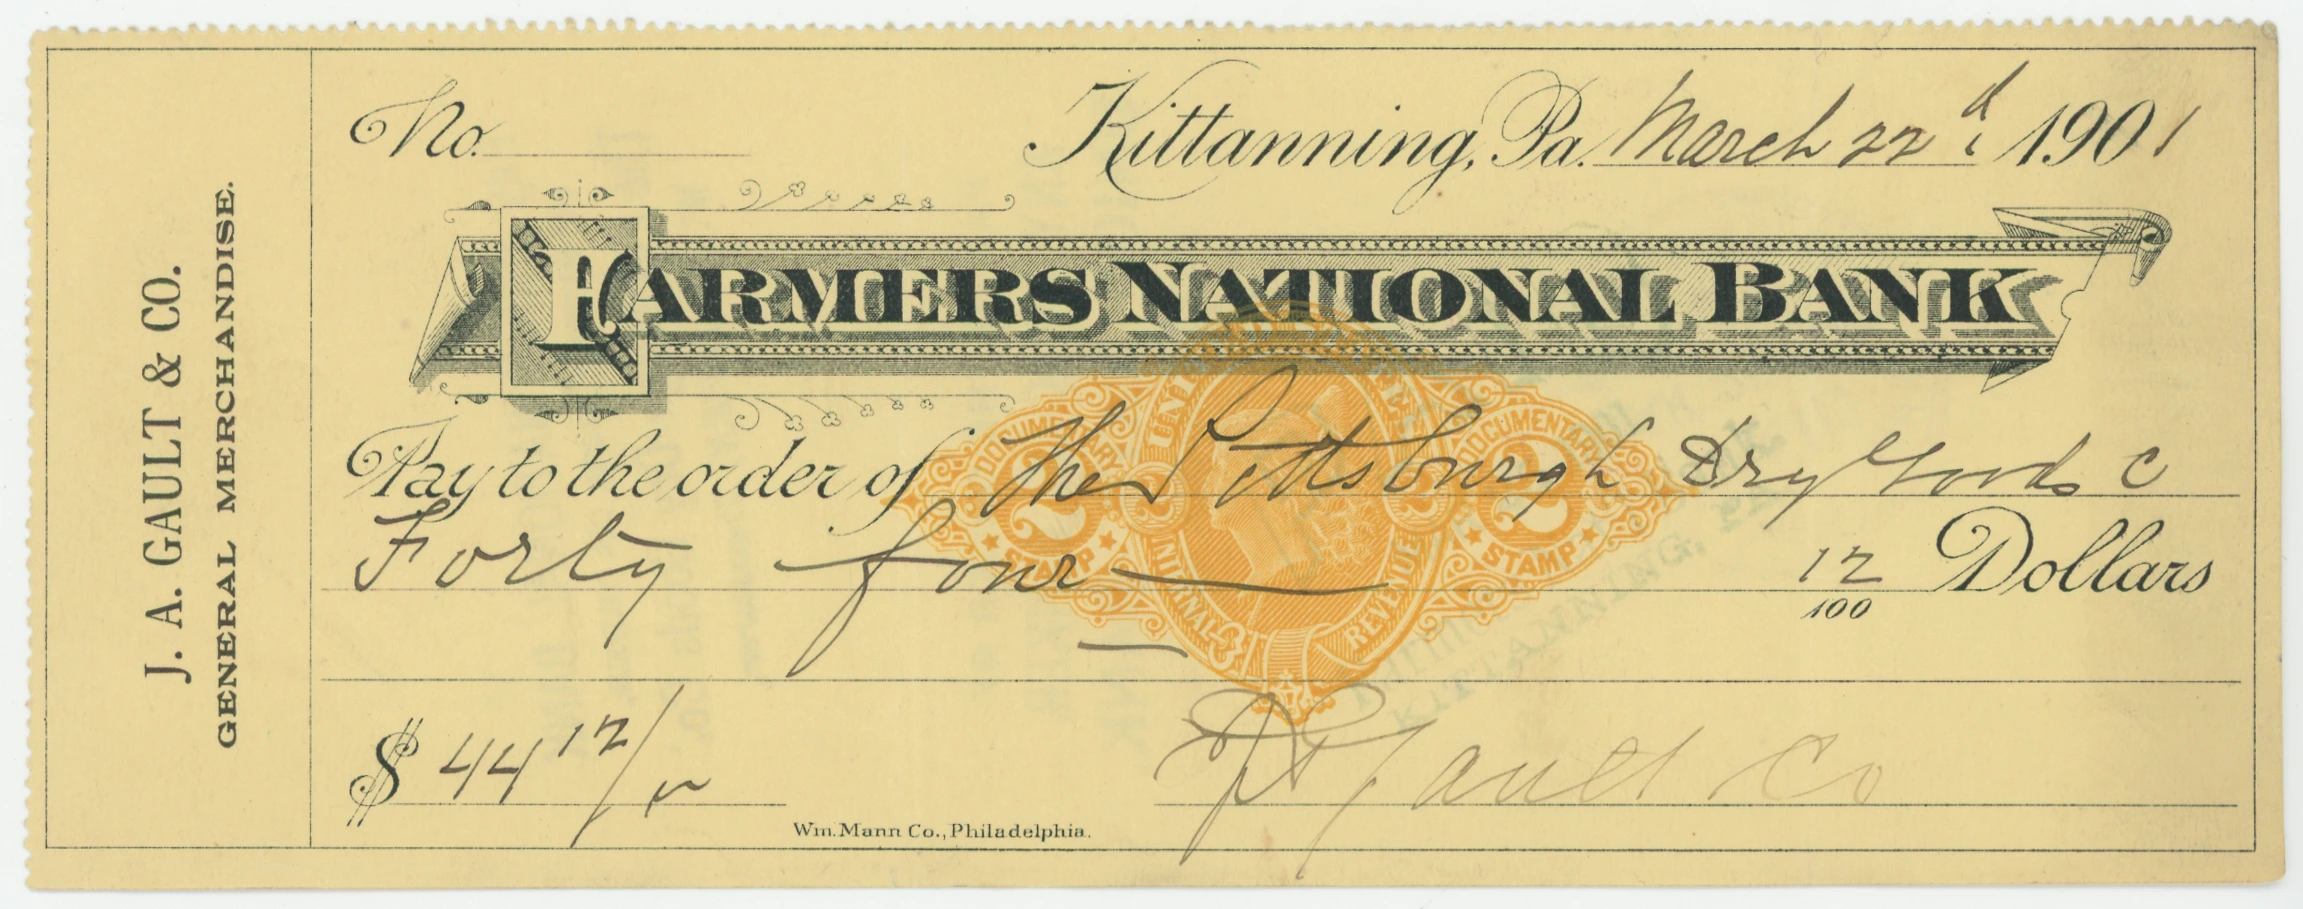 J. A. GAULT & CO.
GENERAL MERCHANDISE.
No.
Kittanning, Pa. March 22d 1901
FARMERS NATIONAL BANK
Pay to the order of The Pittsburgh Dry Goods C
Forty four 12/100 Dollars
DOCUMENTARY 2 STAMP
UNITED STATES INTERNAL REVENUE
2 2
DOCUMENTARY 2 STAMP
KITTANNING, PA.
$ 44 12/
J A Gault Co
Wm. Mann Co., Philadelphia.